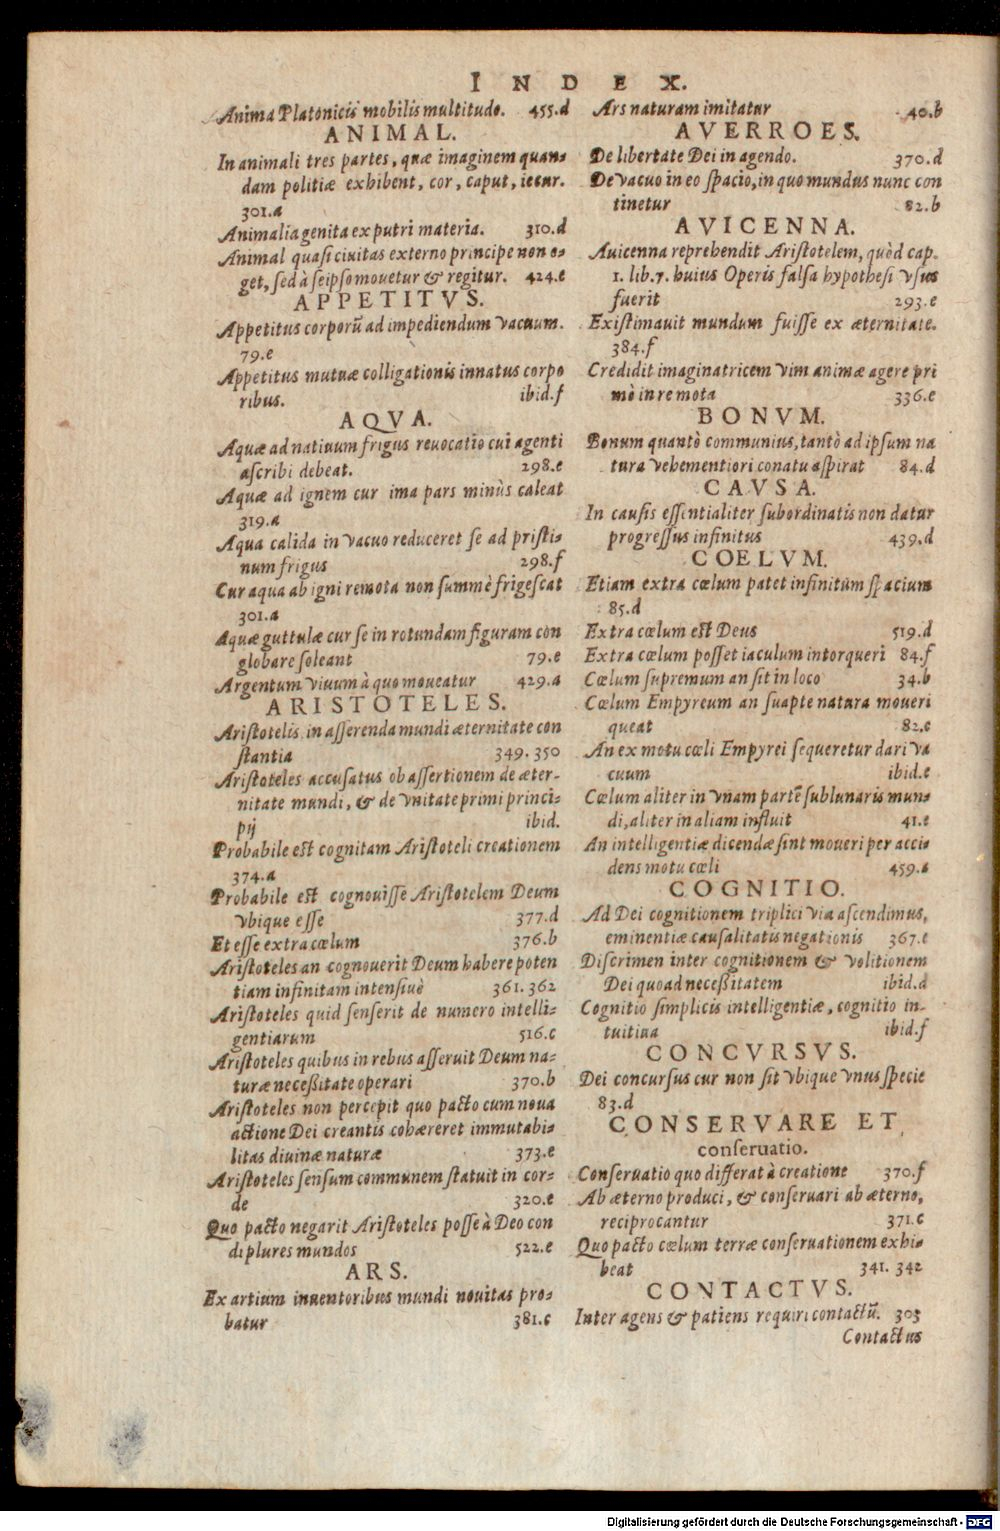 INDEX.
Anima Platonicis mobilis multitudo. 455.d
ANIMAL.
In animali tres partes, quæ imaginem quan-
dam politiæ exhibent, cor, caput, iecur.
301.a
Animalia genita ex putri materia. 310.d
Animal quasi ciuitas externo principe non e-
get, sed à seipso mouetur & regitur. 424.e
APPETITVS.
Appetitus corporū ad impediendum vacuum.
79.e
Appetitus mutuæ colligationis innatus corpo
ribus. ibid.f
AQVA.
Aquæ ad natiuum frigus reuocatio cui agenti
ascribi debeat. 298.e
Aquæ ad ignem cur ima pars minùs caleat
319.a
Aqua calida in vacuo reduceret se ad pristi-
num frigus 298.f
Cur aqua ab igni remota non summè frigescat
301.a
Aquæ guttulæ cur se in rotundam figuram con
globare soleant 79.e
Argentum viuum à quo moueatur 429.a
ARISTOTELES.
Aristotelis in asserenda mundi æternitate con
stantia 349.350
Aristoteles accusatus ob assertionem de æter-
nitate mundi, & de vnitate primi princi-
pij ibid.
Probabile est cognitam Aristoteli creationem
374.a
Probabile est cognouisse Aristotelem Deum
vbique esse 377.d
Et esse extra cœlum 376.b
Aristoteles an cognouerit Deum habere poten
tiam infinitam intensiuè 361.362
Aristoteles quid senserit de numero intelli-
gentiarum 516.c
Aristoteles quibus in rebus asseruit Deum na-
turæ necessitate operari 370.b
Aristoteles non percepit quo pacto cum noua
actione Dei creantis cohæreret immutabi-
litas diuinæ naturæ 373.e
Aristoteles sensum communem statuit in cor-
de 320.e
Quo pacto negarit Aristoteles posse à Deo con
di plures mundos 522.e
ARS.
Ex artium inuentoribus mundi nouitas pro-
batur 381.c
Ars naturam imitatur 40.b
AVERROES.
De libertate Dei in agendo. 370.d
De vacuo in eo spacio, in quo mundus nunc con
tinetur 82.b
AVICENNA.
Auicenna reprehendit Aristotelem, quòd cap.
1. lib.7. huius Operis falsa hypothesi vsus
fuerit 293.e
Existimauit mundum fuisse ex æternitate.
384.f
Credidit imaginatricem vim animæ agere pri
mò in remota 336.e
BONVM.
Bonum quantò communius, tantò ad ipsum na
tura vehementiori conatu aspirat 84.d
CAVSA.
In causis essentialiter subordinatis non datur
progressus infinitus 439.d
COELVM.
Etiam extra cœlum patet infinitum spacium
85.d
Extra cœlum est Deus 519.d
Extra cœlum posset iaculum intorqueri 84.f
Cœlum supremum an sit in loco 34.b
Cœlum Empyreum an suapte natura moueri
queat 82.c
An ex motu cœli Empyrei sequeretur dari va
cuum ibid.e
Cœlum aliter in vnam partē sublunaris mun-
di, aliter in aliam influit 41.e
An intelligentiæ dicendæ sint moueri per acci
dens motu cœli 459.a
COGNITIO.
Ad Dei cognitionem triplici via ascendimus,
eminentiæ causalitatis negationis 367.e
Discrimen inter cognitionem & volitionem
Dei quoad necessitatem ibid.d
Cognitio simplicis intelligentiæ, cognitio in-
tuitiua ibid.f
CONCVRSVS.
Dei concursus cur non sit vbique vnus specie
83.d
CONSERVARE ET
conseruatio.
Conseruatio quo differat à creatione 370.f
Ab æterno produci, & conseruari ab æterno,
reciprocantur 371.c
Quo pacto cœlum terræ conseruationem exhi-
beat 341. 342
CONTACTVS.
Inter agens & patiens requiri contactū. 303
Contactus
Digitalisierung gefördert durch die Deutsche Forschungsgemeinschaft - DFG